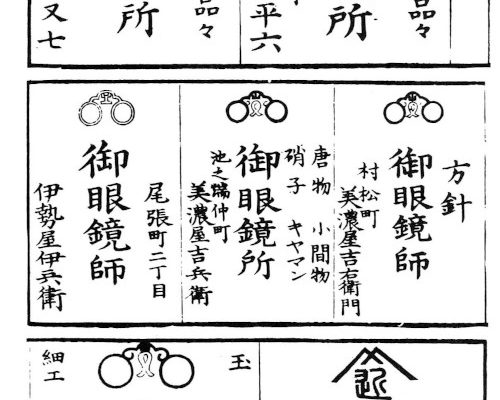 品々
所
平六
品々
所
又七
方針
御眼鏡師
村松町
美濃屋吉右衛門
唐物 小間物
硝子 キヤマン
御眼鏡所
池之端仲町
美濃屋吉兵衛
御眼鏡師
尾張町二丁目
伊勢屋伊兵衛
玉
細工